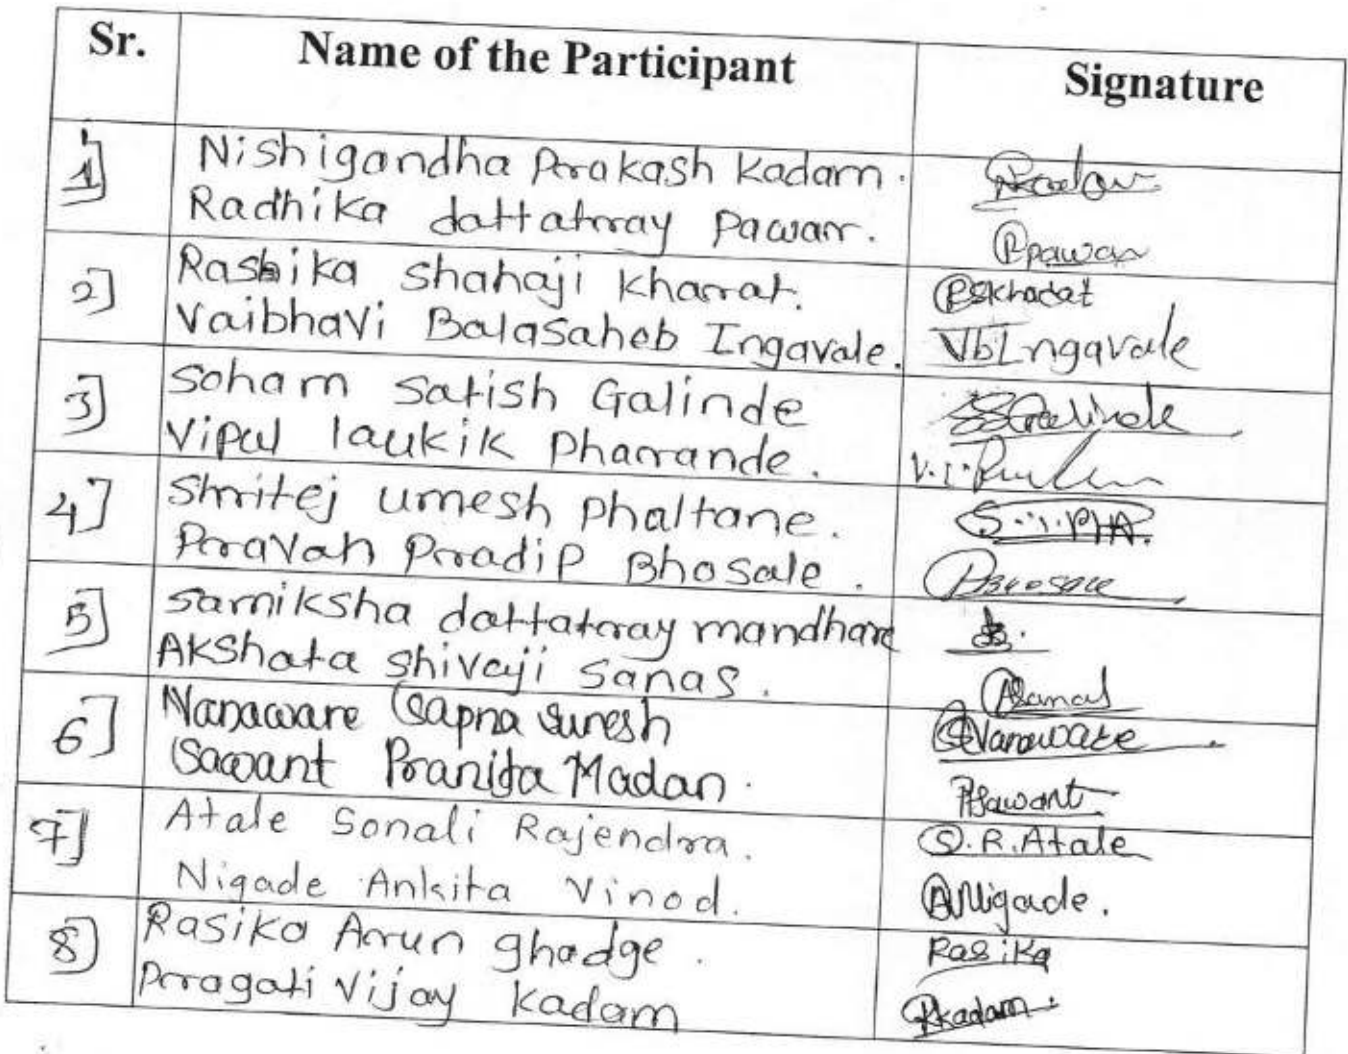 Sr. Name of the Participant Signature
1] Nishigandha Prakash Kadam.
Radhika dattatray Pawar. Rpawar
2] Rashika shahaji kharat. RSkharat
Vaibhavi Balasaheb Ingavale. VbIngavale
3] Soham Satish Galinde SSGalinde
Vipul laukik Pharande.
4] Shritej umesh phaltane.
Pravah Pradip Bhosale. PBhosale
5] samiksha dattatray mandhare
Akshata shivaji sanas. ASanas
6] Nanaware Sapna Suresh SNanaware
Sawant Pranita Madan. PSawant
7] Atale Sonali Rajendra. S.R.Atale
Nigade Ankita Vinod. ANigade.
8] Rasika Arun ghadge. Rasika
Pragati Vijay Kadam Pkadam.